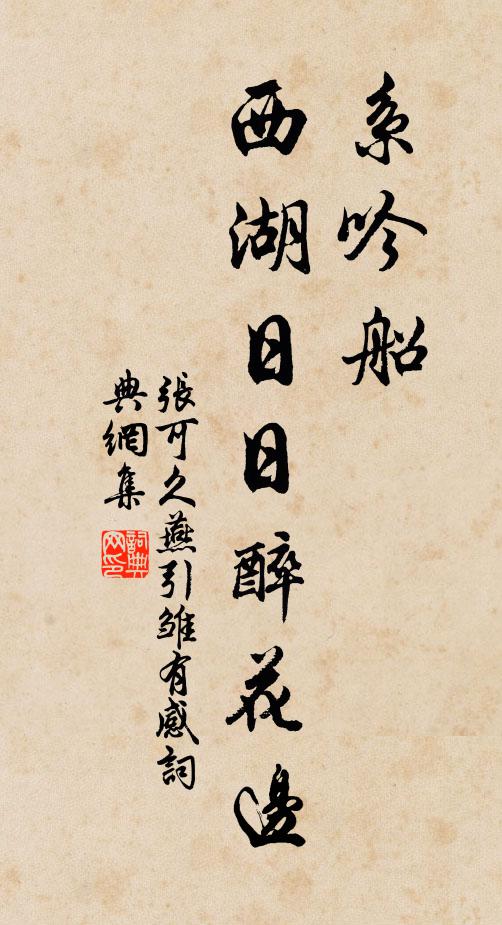 系吟船
西湖日日醉花邊
張可久燕引雏有感詞
典網集
詞典
网印